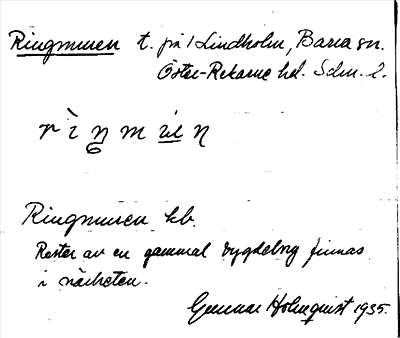 Ringmuren t. på Lindholm, Barva sn.
Öster-Rekarne hd. Sdm. l.
Ringmuren kb.
Rester av en gammal bygdeborg finnas
i närheten.
Gunnar Holmquist 1935.